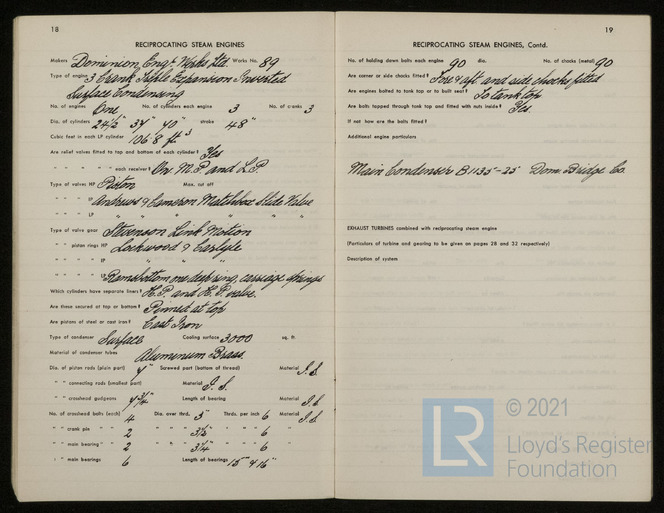 18
RECIPROCATING STEAM ENGINES
Makers Dominion Engr. Works Ltd. Works No. 89
Type of engine 3 Crank Triple Expansion Inverted
Surface Condensing
No. of engines One No. of cylinders each engine 3 No. of cranks 3
Dia. of cylinders 24½" 37" 70" stroke 48"
Cubic feet in each LP cylinder 106.8 ft.³
Are relief valves fitted to top and bottom of each cylinder? Yes
" " " " each receiver? On M.P. and L.P.
Type of valves HP Piston Max. cut off
" " " IP Andrews & Cameron Matchbox Slide Valve
" " " LP " " " " " "
Type of valve gear Stevenson Link Motion
" " piston rings HP Lockwood & Carlyle
" " " " IP " " "
" " " " LP Ramsbottom one deep ring, carriage springs
Which cylinders have separate liners? H.P. and H.P. valve.
Are these secured at top or bottom? Pinned at top
Are pistons of steel or cast iron? Cast Iron
Type of condenser Surface Cooling surface 3000 sq. ft.
Material of condenser tubes Aluminum Brass.
Dia. of piston rods (plain part) Screwed part (bottom of thread) Material I.S.
" " connecting rods (smallest part) Material I.S.
" " crosshead gudgeons Length of bearing Material I.S.
No. of crosshead bolts (each) 4 Dia. over thrd. 3" Thrds. per inch 6 Material I.S.
" " crank pin " " 2 " " " 3½" " " " 6 "
" " main bearing " 2 " " " 3¼" " " " 6 "
" " main bearings 6 Length of bearings 15" & 16"
19
RECIPROCATING STEAM ENGINES, Contd.
No. of holding down bolts each engine 90 dia. No. of chocks (metal) 90
Are corner or side chocks fitted? Fore & aft and side chocks fitted
Are engines bolted to tank top or to built seat? To tank top
Are bolts tapped through tank top and fitted with nuts inside? Yes.
If not how are the bolts fitted?
Additional engine particulars
Main Condenser B1135-25 Dom. Bridge Co.
EXHAUST TURBINES combined with reciprocating steam engine
(Particulars of turbine and gearing to be given on pages 28 and 32 respectively)
Description of system
LR
© 2021
Lloyd's Register
Foundation